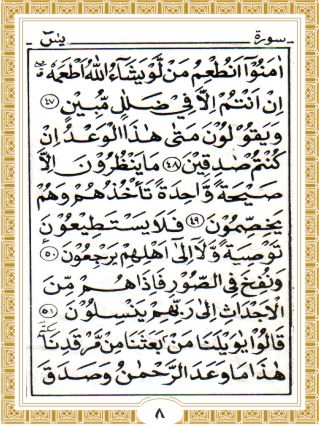 سورة يٰسٓ
اٰمَنُوْۤا اَنُطْعِمُ مَنْ لَّوْ يَشَآءُ اللّٰهُ اَطْعَمَهٗۤ ۖۗ
اِنْ اَنْتُمْ اِلَّا فِيْ ضَلٰلٍ مُّبِيْنٍ ﴿٤٧﴾
وَيَقُوْلُوْنَ مَتٰى هٰذَا الْوَعْدُ اِنْ
كُنْتُمْ صٰدِقِيْنَ ﴿٤٨﴾ مَا يَنْظُرُوْنَ اِلَّا
صَيْحَةً وَّاحِدَةً تَأْخُذُهُمْ وَهُمْ
يَخِصِّمُوْنَ ﴿٤٩﴾ فَلَا يَسْتَطِيْعُوْنَ
تَوْصِيَةً وَّلَاۤ اِلٰٓى اَهْلِهِمْ يَرْجِعُوْنَ ﴿٥٠﴾
وَنُفِخَ فِي الصُّوْرِ فَاِذَا هُمْ مِّنَ
الْاَجْدَاثِ اِلٰى رَبِّهِمْ يَنْسِلُوْنَ ﴿٥١﴾
قَالُوْا يٰوَيْلَنَا مَنْۢ بَعَثَنَا مِنْ مَّرْقَدِنَا
هٰذَا مَا وَعَدَ الرَّحْمٰنُ وَصَدَقَ
٨